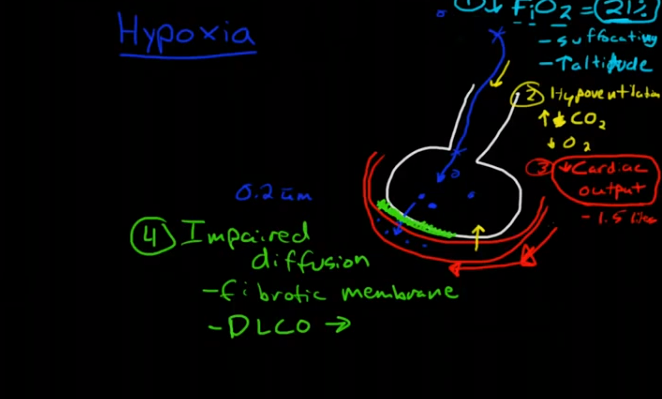 Hypoxia
① ↓ FiO2 = 21%
- suffocating
- ↑ altitude
② Hypoventilation
↑ CO2
↓ O2
③ ↓ Cardiac
output
0.2 um
④ Impaired
diffusion
- fibrotic membrane
- DLCO →